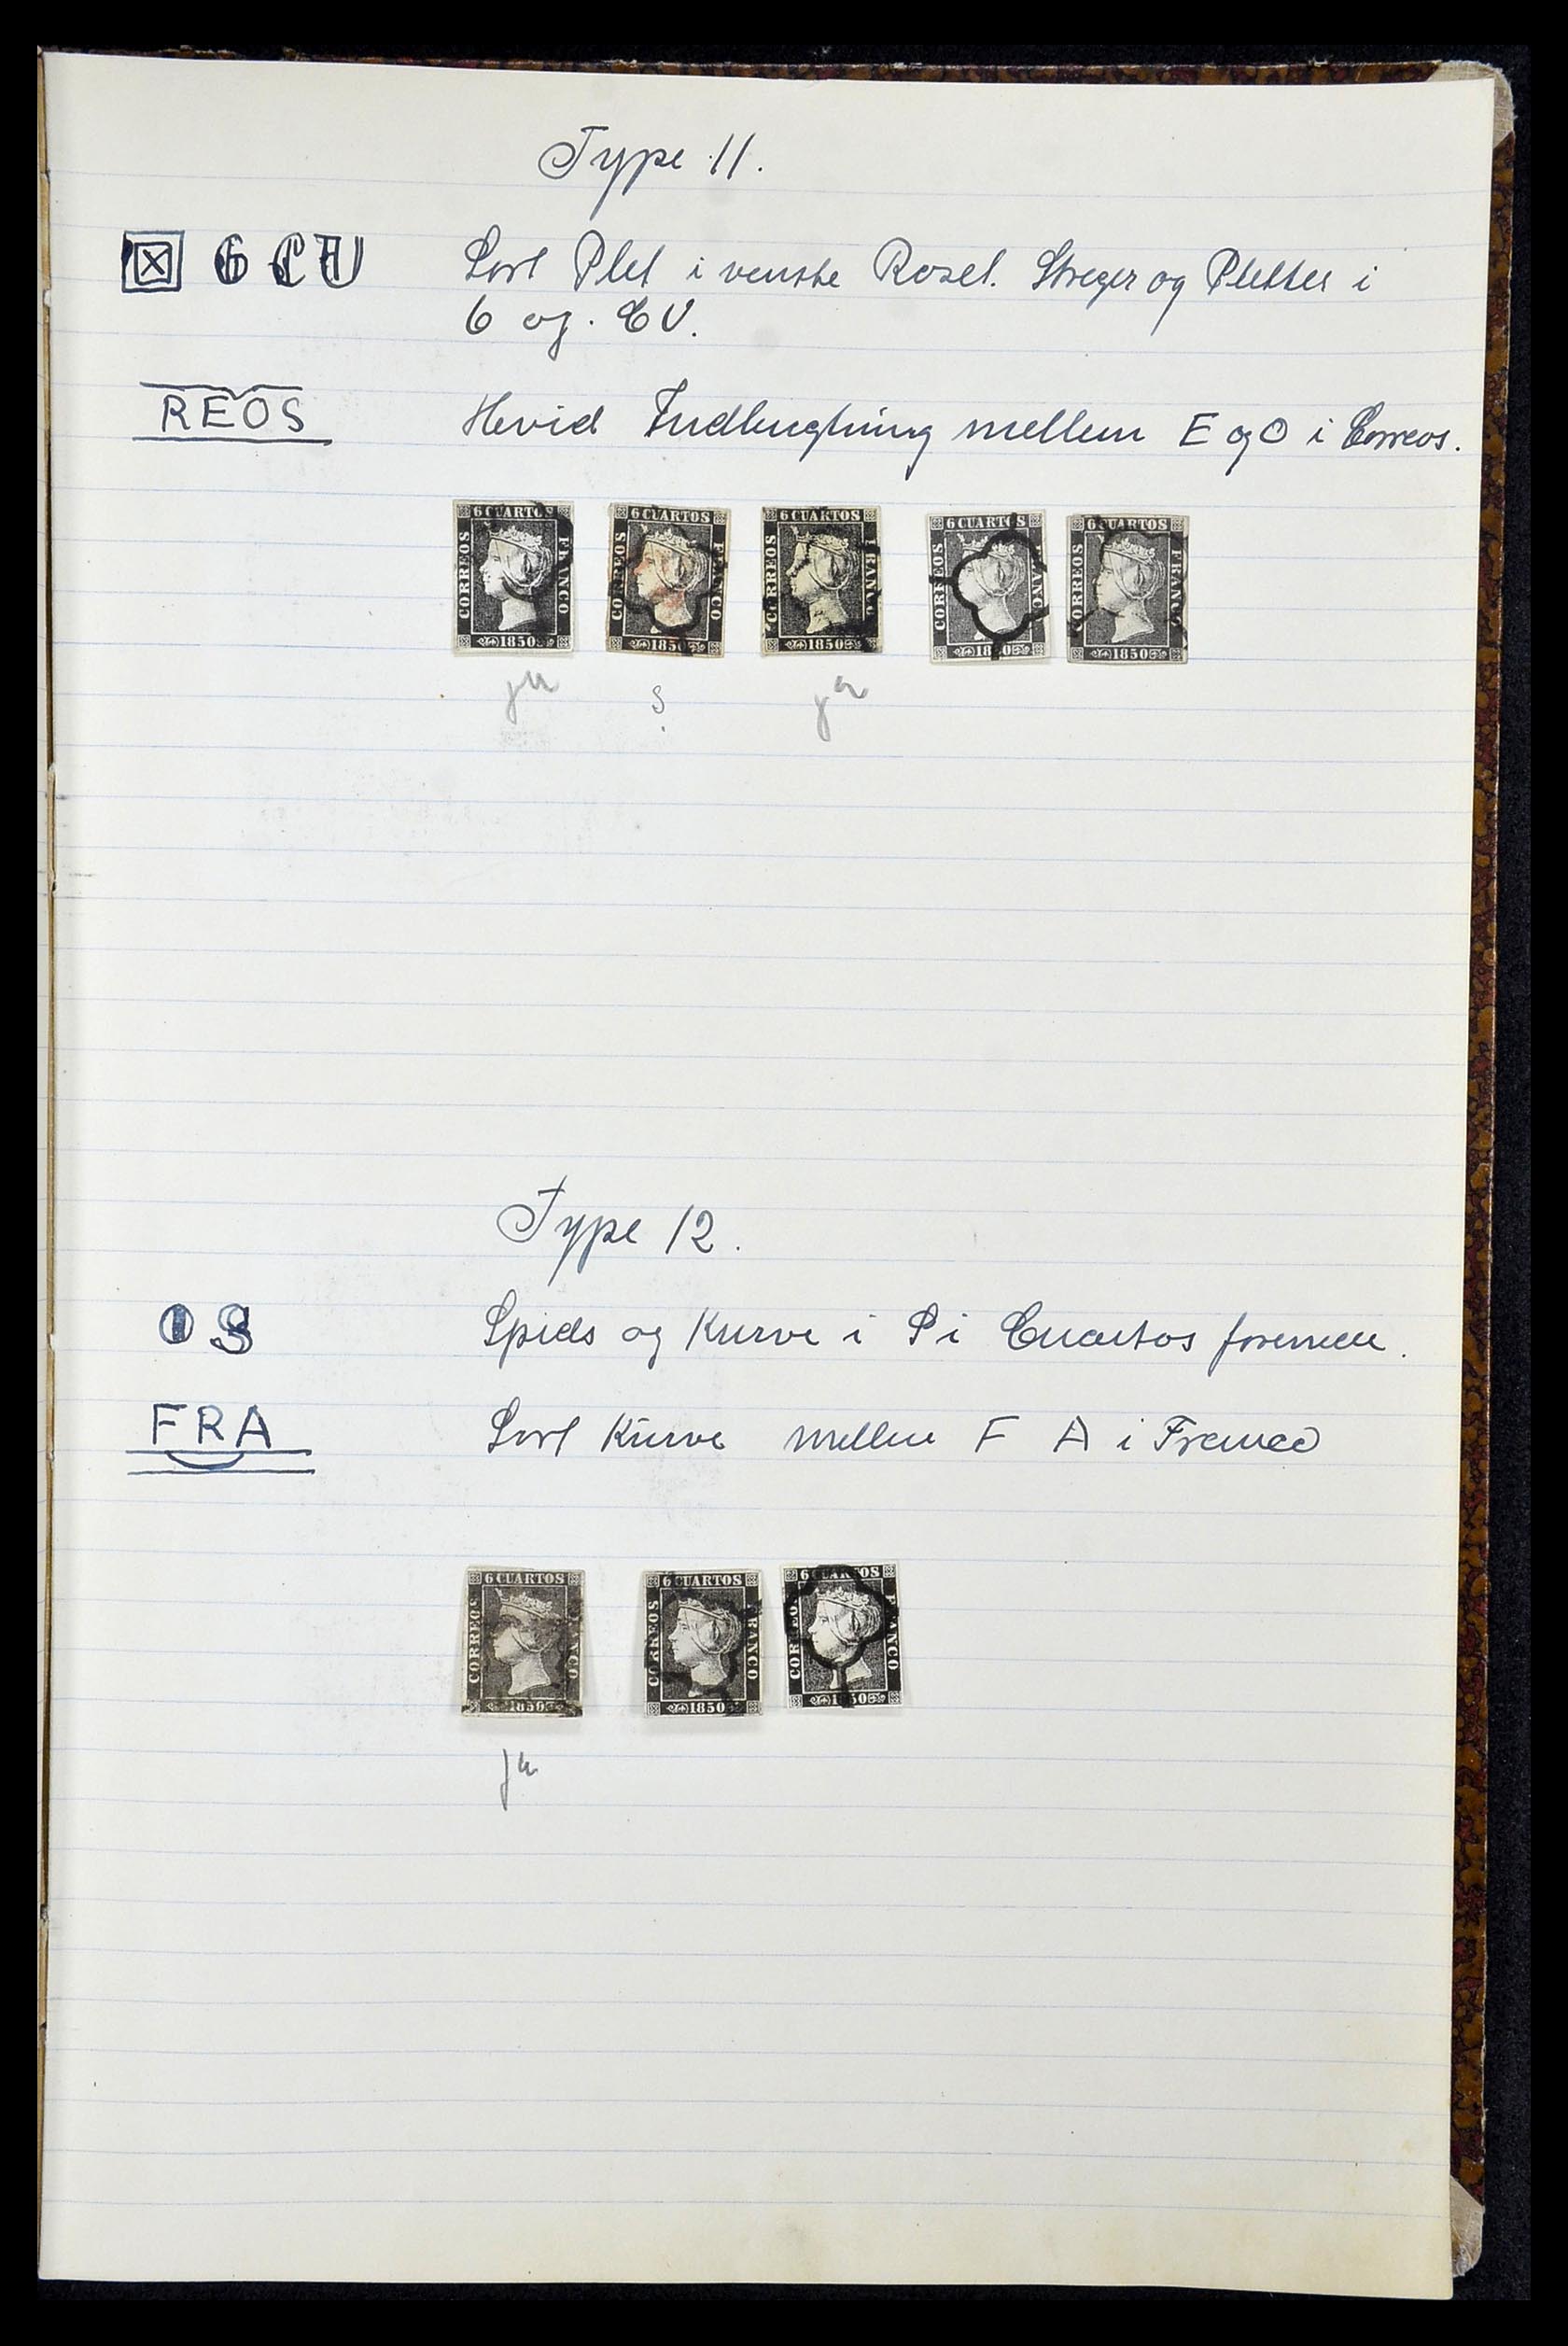 Type 11.
6 C U Sort Plet i venstre Roset. Streger og Pletter i
6 og. CU.
REOS Hvid Indbugtning mellem E og O i Correos.
6 CUARTOS CORREOS FRANCO 1850
6 CUARTOS CORREOS FRANCO 1850
6 CUARTOS CORREOS FRANCO 1850
6 CUARTOS CORREOS FRANC 18 0
6 CUARTOS CORREOS FRANCO 1850
ja S. ja
Type 12.
O S Spids og Kurve i S i Cuartos foroven.
FRA Sort Kurve mellem F A i Franco
6 CUARTOS CORREOS FRANCO 1850
6 CUARTOS CORREOS FRANCO 1850
6 CUARTOS CORREO FRANCO 1850
ja